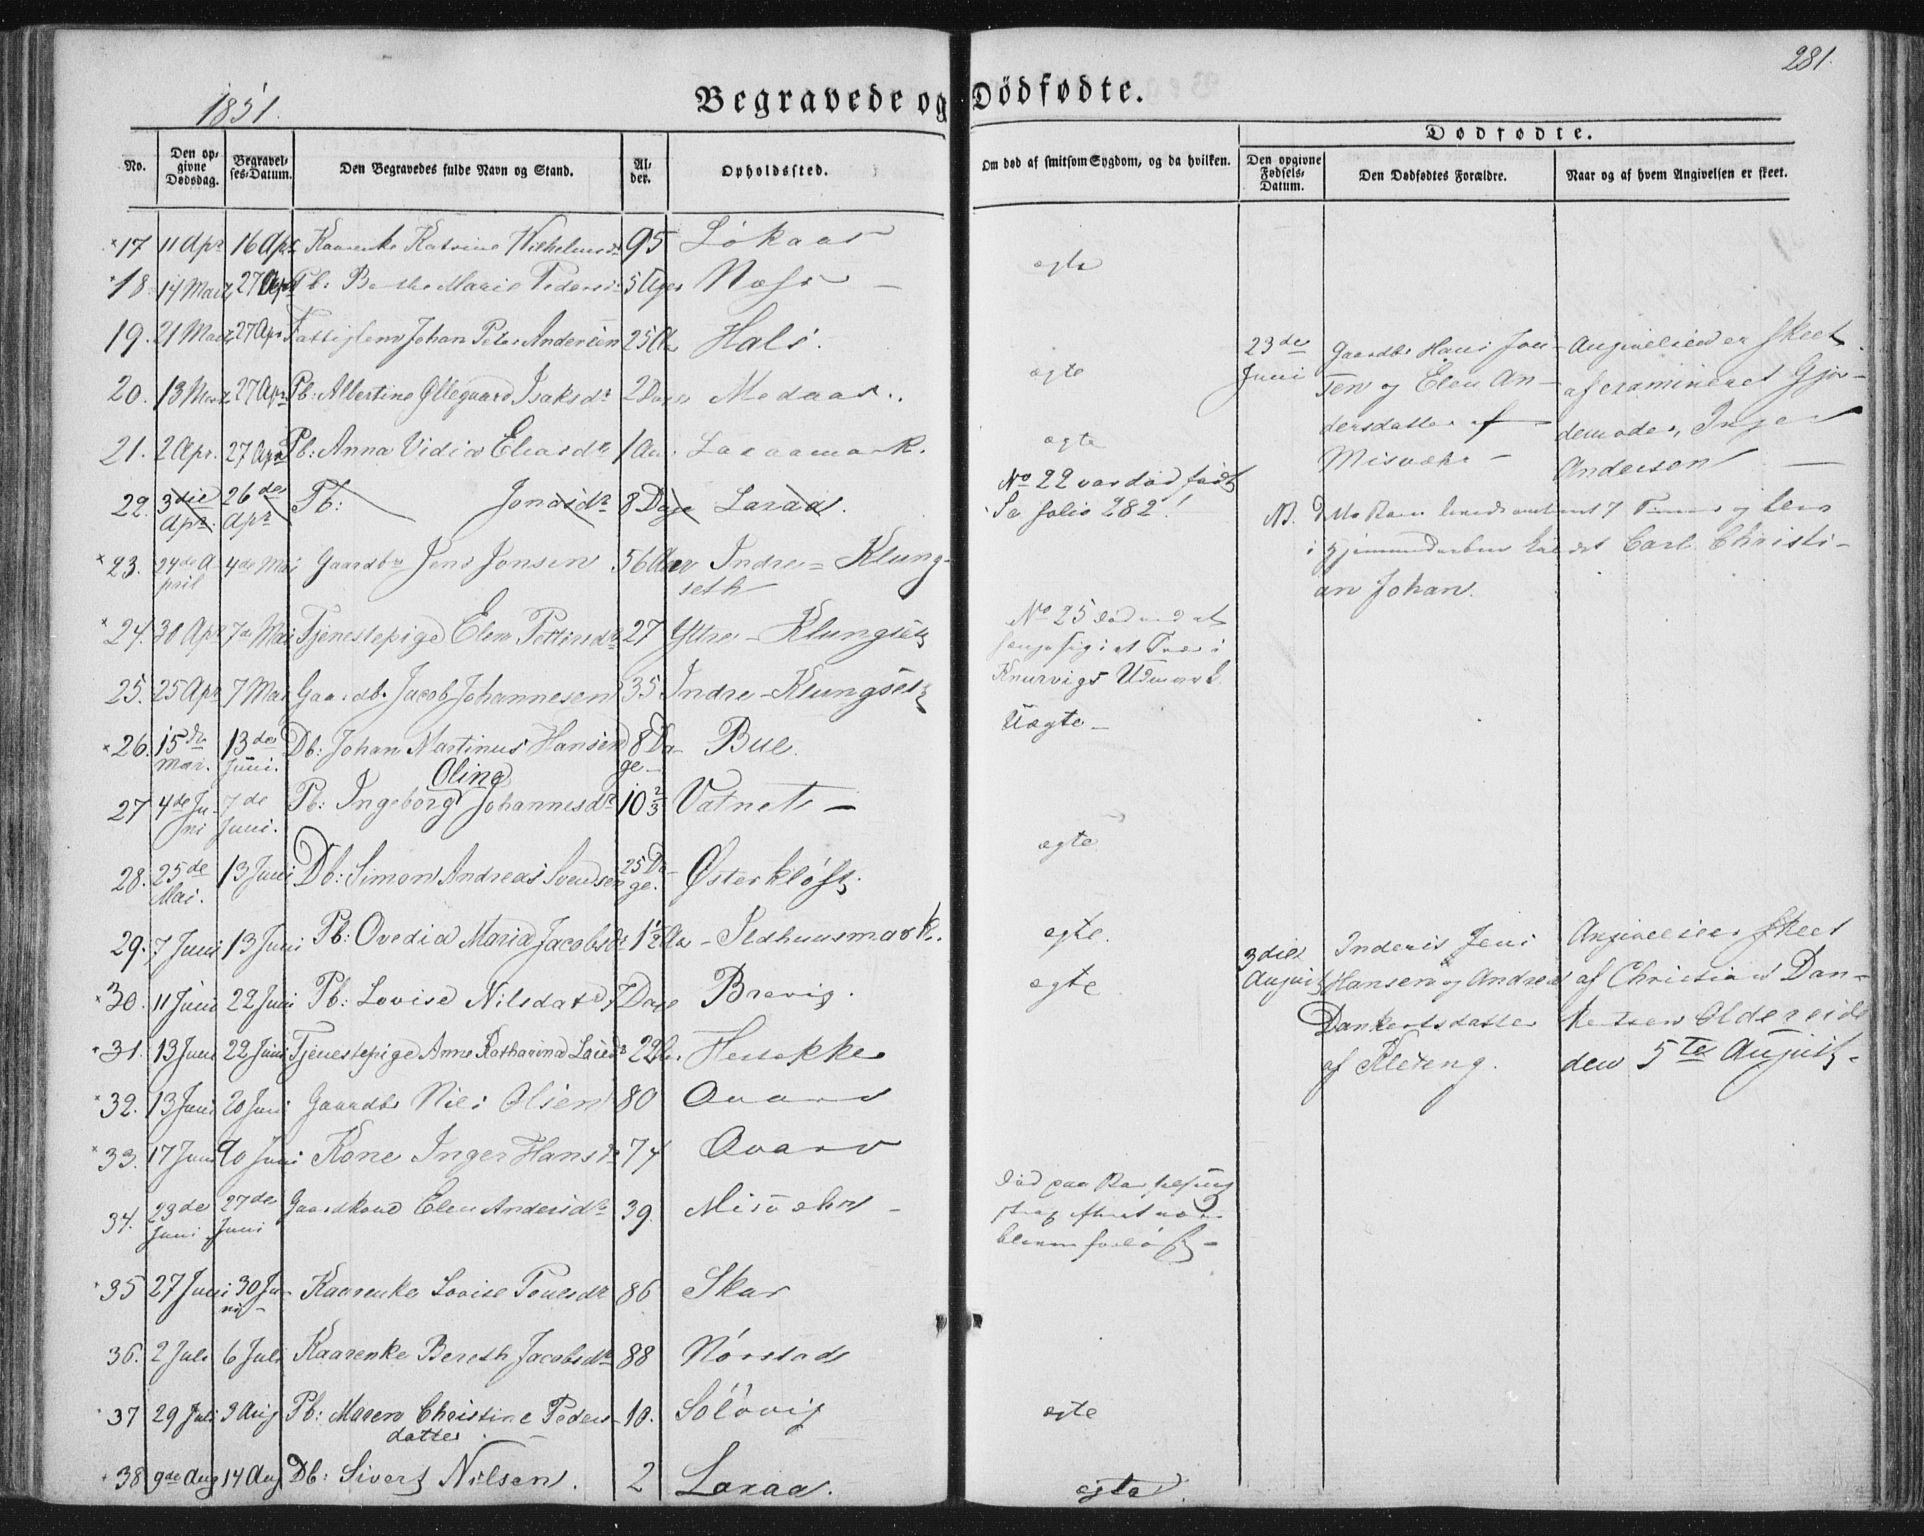 1851.
281.
Begravede og Dödfødte.
Dødfødte.
No.
Den opgivne Dødsdag.
Begravelses-Datum.
Den Begravedes fulde Navn og Stand.
Alder.
Opholdssted.
Om død af smitsom Sygdom, og da hvilken.
Den opgivne Fødsels-Datum.
Den Dødfødtes Forældre.
Naar og af hvem Angivelsen er skeet.
17 11 Apr 16 Apr Kaarenke Katrine Wilhelmsdr 95 Løkaas
18 14 Marz 27 Apr Pb: Berthe Marie Peders 5 Uger Næss – ægte
19. 21 Marz 27 Apr Fattiglem Johan Peter Andersen 25 Hals.
20. 13 Marz 27 Apr Pb: Albertine Øllegaard Isaksdr 2 Dage Medaas. ægte
21. 2 Apr. 27 Apr Pb: Anna Vidia Eliasdr 1 Aar Laxaamark. ægte
22. 3die Apr. 26de Apr Pb: Jonasdr 8 Dage Laxaa. No 22 var død født Se folio 282!
23. 24de April 4de Mai Gaardbr Jens Jonsen 56 Aar Indre = Klungseth
24. 30 Apr 7de Mai Tjenestepige Elen Pettersdr 27 Yttre – Klungset
25. 25 Apr 7 Mai Gaardbr Jacob Johannesen 35 Indre – Klungset No 25 død ved at hænge sig i et Træ i Knurvigs Udmark.
26. 15de Mai. 13de Juni. Db: Johan Martinus Hansen 8 Dage – Bue. Uægte –
27 4de Juni 7de Juni. Pb: Ingeborg Oline Johannesdr 10 2/3 Vatnet –
28. 25de Mai. 13 Juni Db: Simon Andreas Svendsen 25 Dage. Østerkløft. ægte
29. 7 Juni 13 Juni Pb: Ovedia Maria Jacobsdr 1 1/2 Aar – Ildhuusmark. ægte.
30. 11 Juni 22 Juni Pb: Lovise Nilsdatr 7 Dage Brevig. ægte
31. 13 Juni 22 Juni Tjenestepige Anne Katharina 22
32. 13 Juni 20 Juni Gaardbr Nils Olsen 80 Qvarv
33. 17 Juni 20 Juni Kone Inger Hansdr 74 Qvarv
34. 23de Juni 27de Juni Gaardkone Elen Andersdr 39. Misvehr – Død paa Barselseng strax efter at være bleven forløst –
35 27 Juni 30 Juni – Kaarenke Lovise 86 Skar
36. 2 Juli 6 Juli Kaarenke Bereth Jacobsdr 88 Nörstad
37 29 Juli 3 Aug Pb: Maren Christine Pedersdatter 10. Sölövig ægte
38 9de Aug 14 Aug Db: Sivert Nilsen. 2 Laxaa. ægte.
23de Juni
Gaardbr Hans Jon-
sen og Elen An-
dersdatter af
Misvær –
Angivelsen er skeet
af examineret Gjor-
demoder, Inger
Anderson –
NB. 7 og blev
i Hjemmedaaben kaldet Carl Christi-
an Johan.
3die August
Inderst Jens
Hansen og Andrea
Dankertsdatter
af Kleteng.
Angivelsen skeet
af Christian Dan-
kertsen Oldereide
den 5te August.